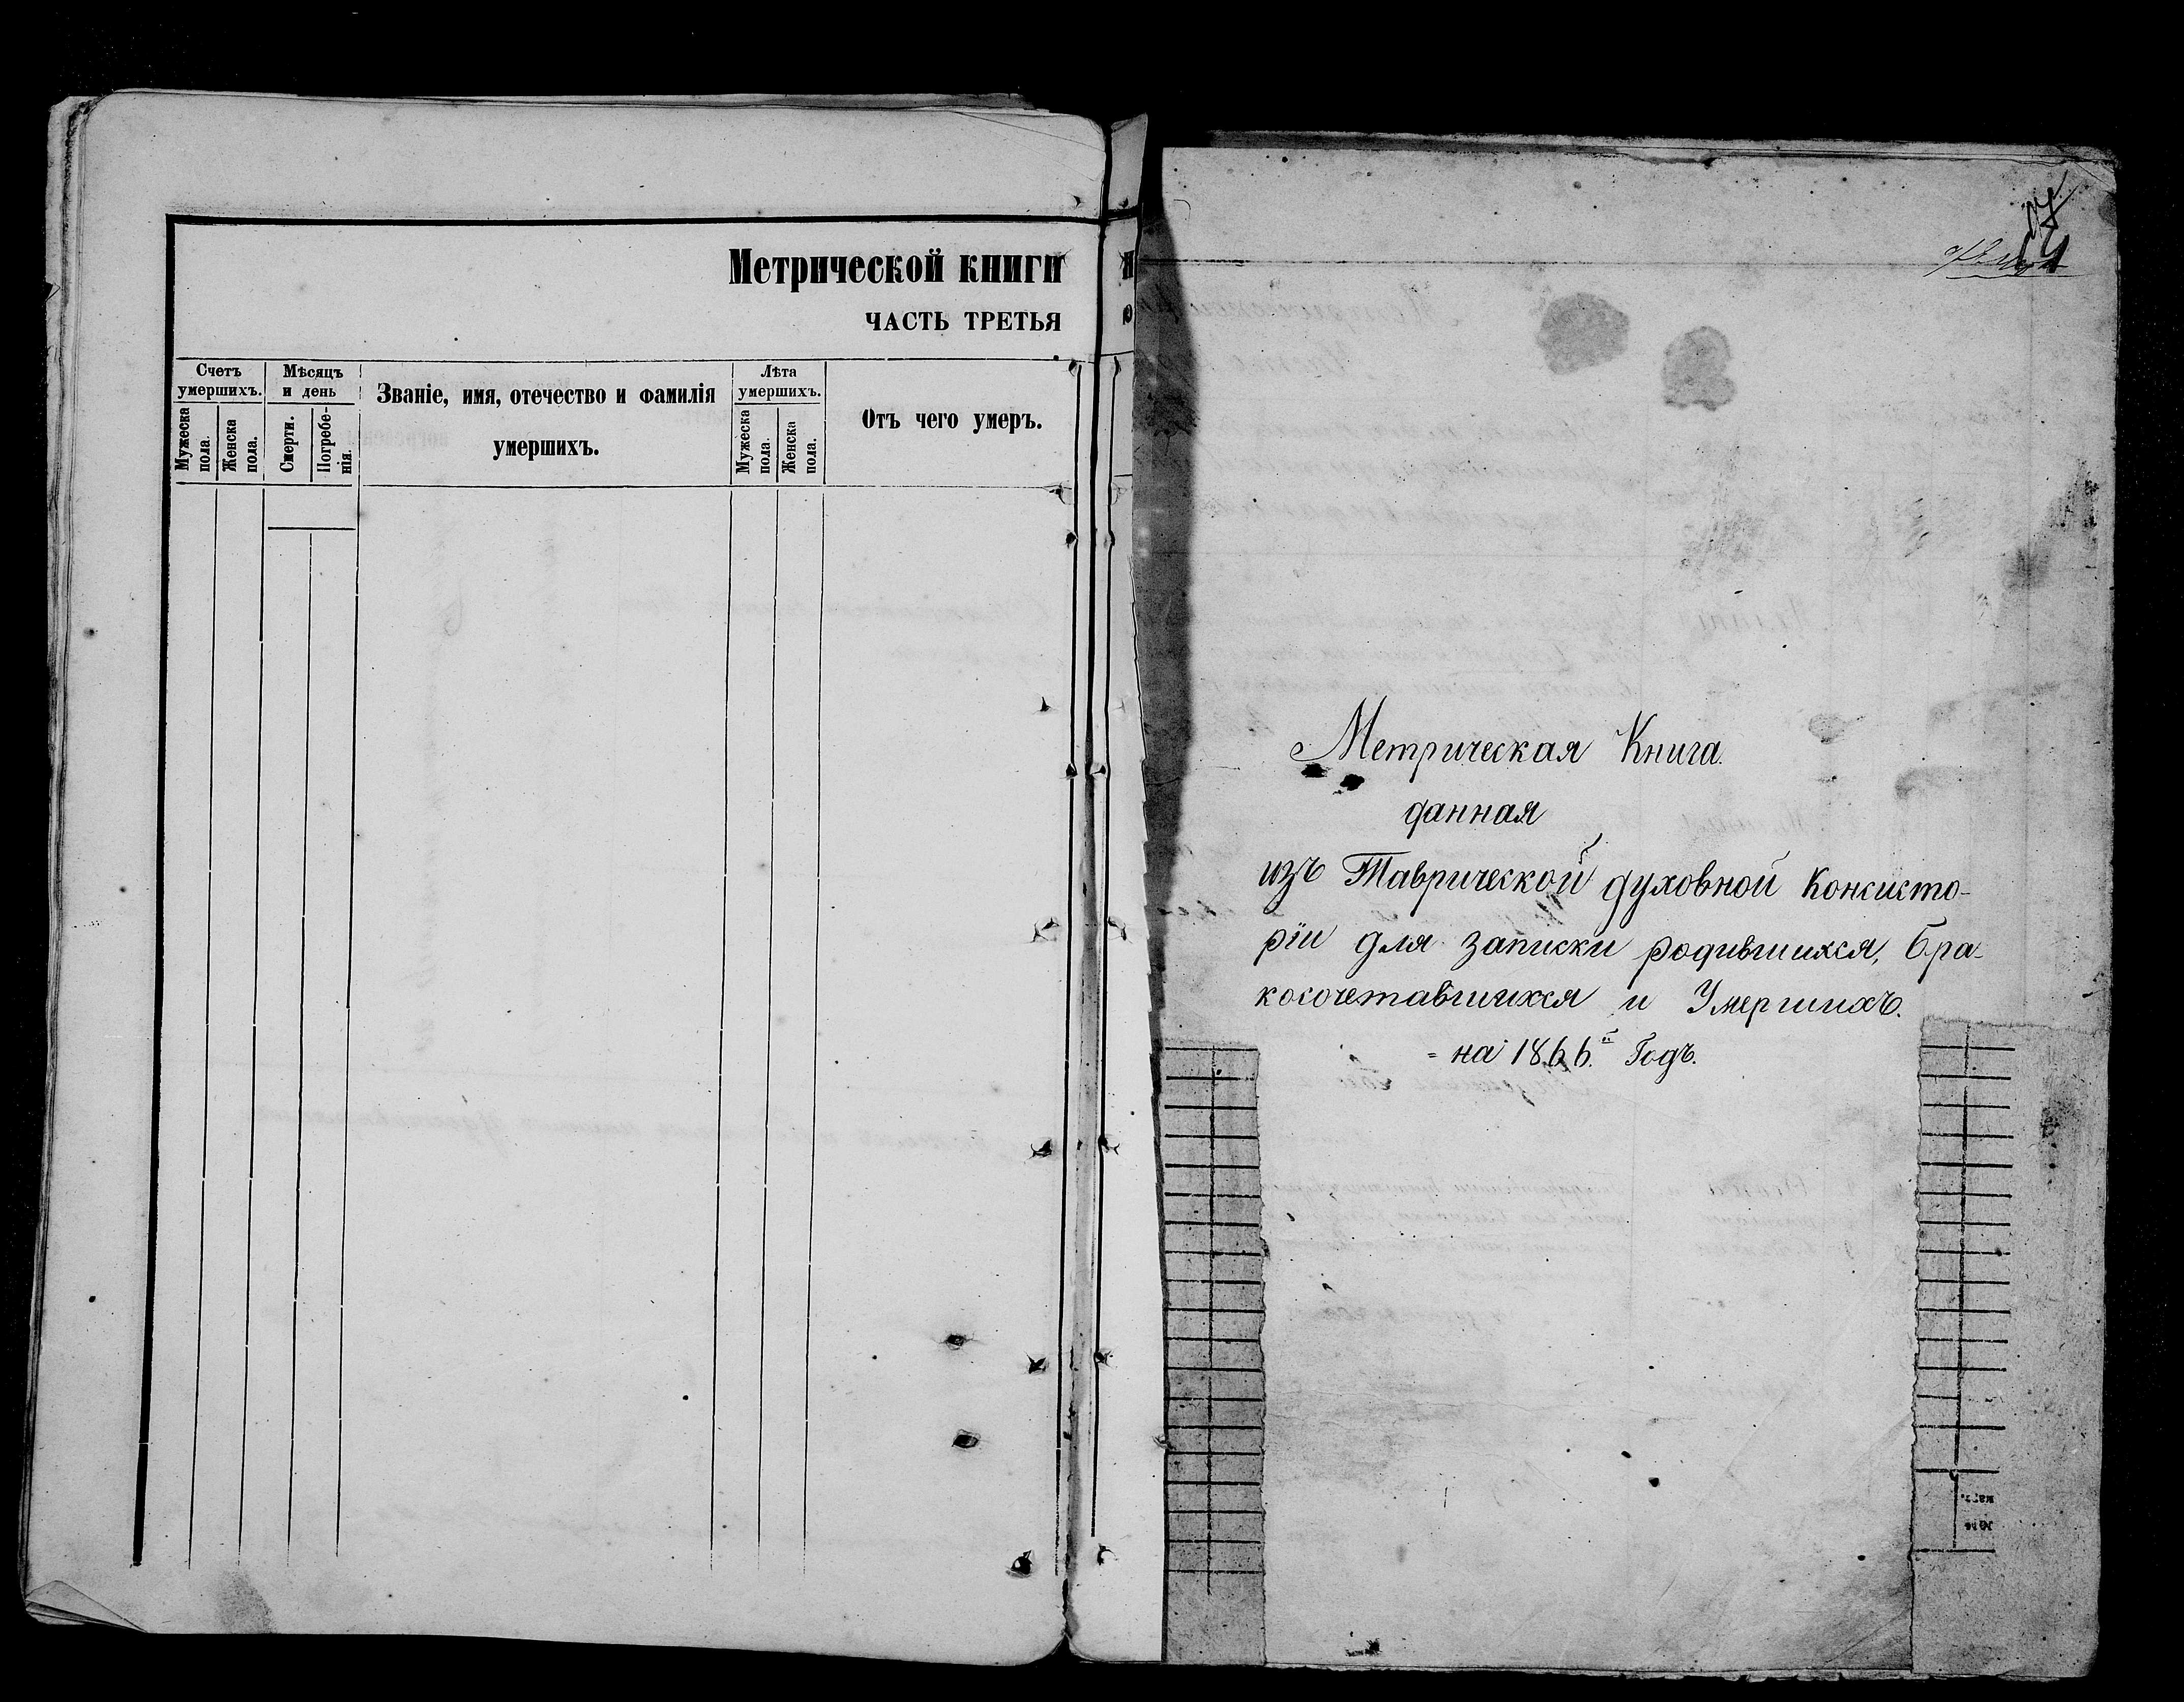 Метрической книги
ЧАСТЬ ТРЕТЬЯ
Счетъ умершихъ.
Мужеска пола.
Женска пола.
Мѣсяцъ и день
Смерти.
Погребе-
нія.
Званіе, имя, отечество и фамилія
умершихъ.
Лѣта умершихъ.
Мужеска пола.
Женска пола.
Отъ чего умеръ.
Метрическая Книга.
данная
изъ Таврической духовной Консисто-
ріи для записки родившихся, бра-
косочетавшихся и Умершихъ.
на 1866.й Годъ.